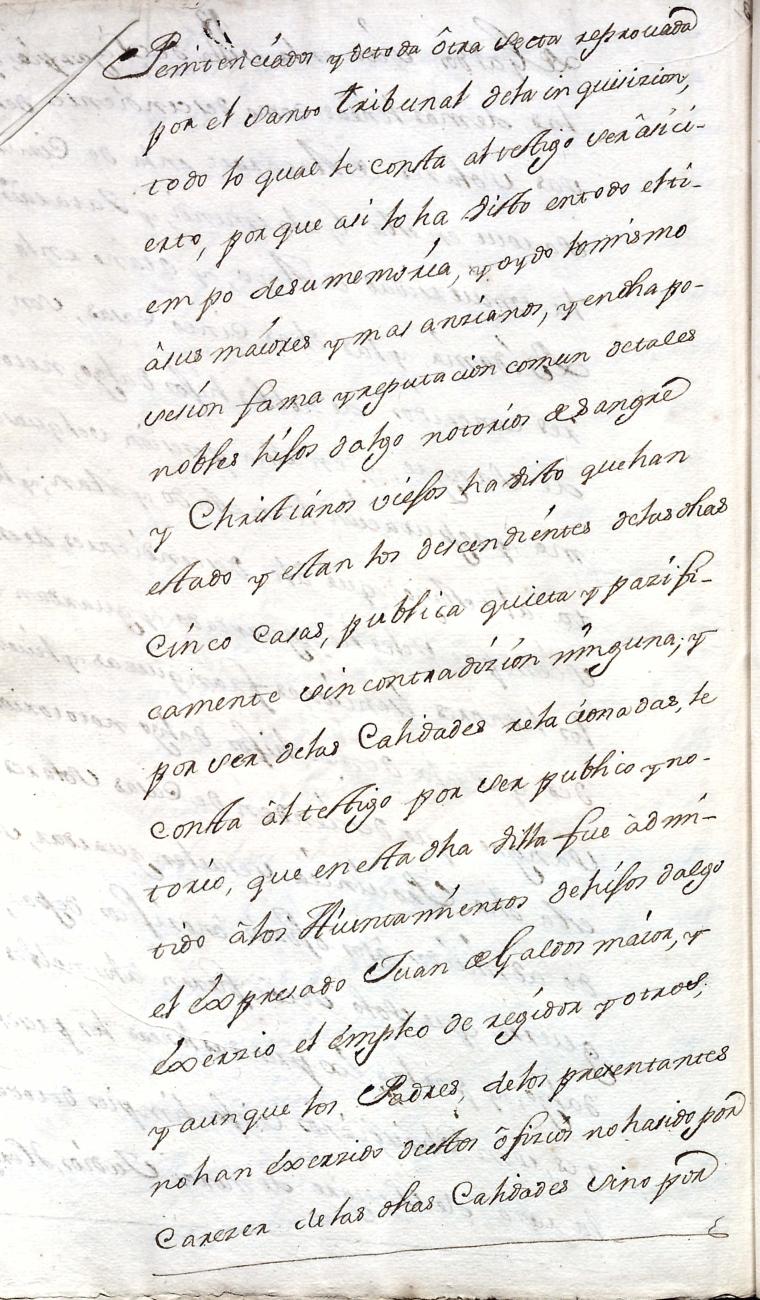 Penitenciados y de toda ôtra secta reprovada
por el Santo Tribunal dela inquisizion,
todo lo qual le consta al testigo ser âsi ci-
erto, porque asi lo ha visto entodo el ti-
empo desumemoria, y oydo lo mismo
âsus maíores y mas anzianos, y en dha po-
sesíon fama y reputacion comun detales
nobles híjos dalgo notoríos de sangre
y Christiános viejos ha visto que han
estado y estan los descendiéntes delas dhas
Cínco Casas, publica quieta y pazifi-
camente sin contradizíon nínguna; y
por ser delas Calidades relacionadas, le
consta âl testigo por ser publico y no-
torío, que enesta dha villa fue âdmi-
tido âlos Aiuntamientos dehíjos dalgo
el Expresado Juan de Galdos maíor, y
Exerzio el émpleo de regidor y otros;
y aunque los Padres, delos presentantes
no han Exerzido deestos ôfizios no hasido por
Carezer delas dhas Calidades sino por